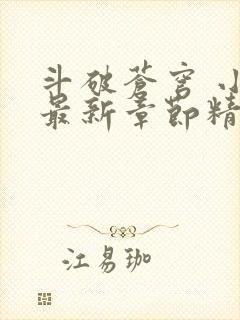 斗破苍穹 小
最新章节精
江易珈